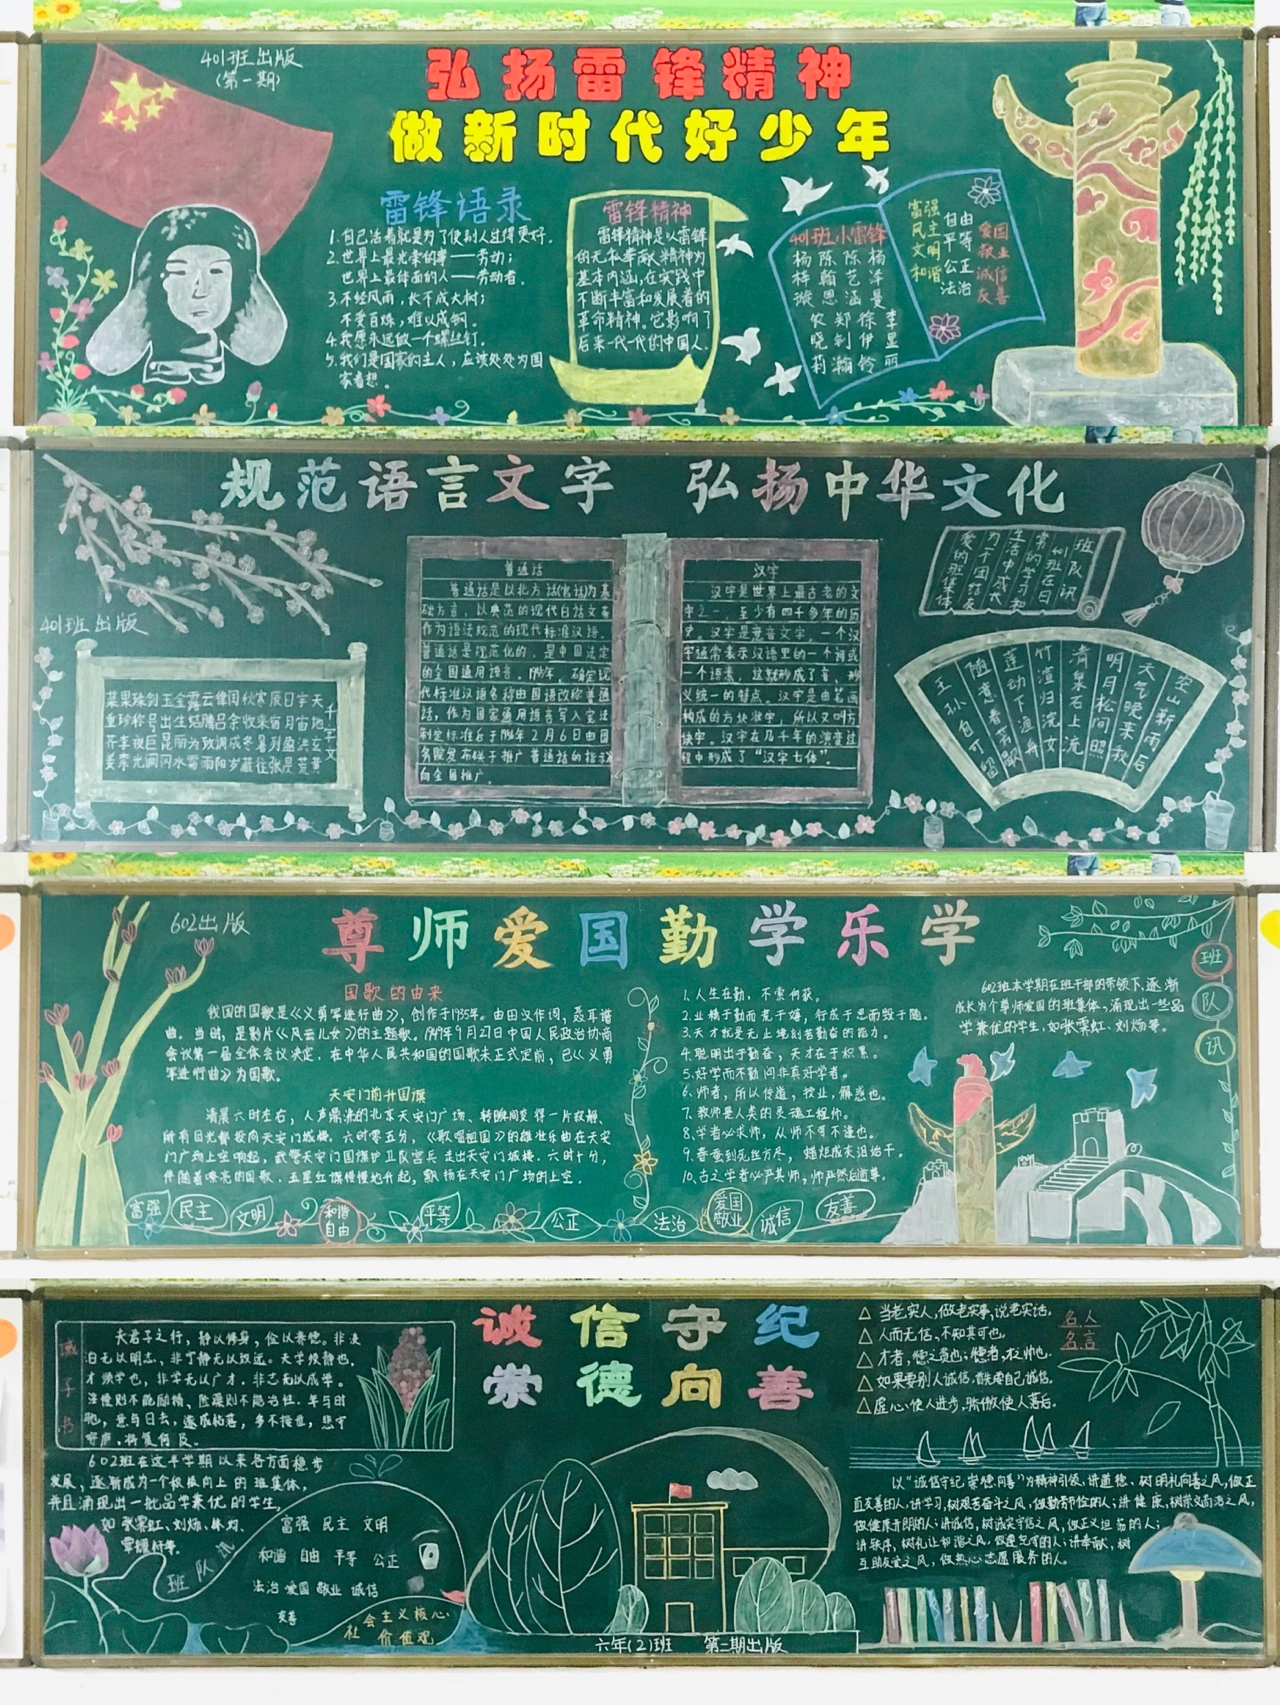 401班出版
(第一期)
弘扬雷锋精神
做新时代好少年
雷锋语录
1.自己活着就是为了使别人过得更好.
2.世界上最光荣的事——劳动;
世界上最体面的人——劳动者.
3.不经风雨,长不成大树;
不受百炼,难以成钢.
4.我愿永远做一个螺丝钉.
5.我们是国家的主人,应该处处为国
家着想.
雷锋精神
雷锋精神是以雷锋
的无私奉献精神为
基本内涵,在实践中
不断丰富和发展着的
革命精神,它影响了
后来一代一代的中国人.
401班小雷锋
富强
民主
文明
和谐
自由
平等
公正
法治
爱国
敬业
诚信
友善
规范语言文字 弘扬中华文化
401班出版
千字文
普通话
普通话是以北方话(官话)为基
础方言,以典范的现代白话文著
作为语法规范的现代标准汉语.
普通话是规范化的,是中国法定
的全国通用语言.
汉字
汉字是世界上最古老的文
字之一,至少有四千多年的历
史。汉字是意音文字,一个汉
字通常表示汉语里的一个词或
一个语素,这就形成了音、形、
义统一的特点。汉字是由笔画
构成的方块状字,所以又叫方
块字。汉字在几千年的演变过
程中形成了“汉字七体”.
班队讯
401班在日
常的学习和
生活中成长
为一个团结友
爱的班集体
空山新雨后
天气晚来秋
明月松间照
清泉石上流
竹喧归浣女
莲动下渔舟
随意春芳歇
王孙自可留
602出版
尊师爱国勤学乐学
国歌的由来
我国的国歌是《义勇军进行曲》,创作于1935年。由田汉作词,聂耳谱
曲。当时,是影片《风云儿女》的主题歌。1949年9月27日中国人民政治协商
会议第一届全体会议决定,在中华人民共和国的国歌未正式定前,已《义勇
军进行曲》为国歌.
天安门前升国旗
清晨六时左右,人声鼎沸的北京天安门广场、转瞬间变得一片寂静、
所有目光都投向天安门城楼。六时零五分,《歌唱祖国》的雄壮乐曲在天安
门广场上空响起,武警天安门国旗护卫队官兵走出天安门城楼.六时十分,
伴随着嘹亮的国歌.五星红旗慢慢地升起,飘扬在天安门广场的上空.
1.人生在勤,不索何获。
2.业精于勤而荒于嬉,行成于思而毁于随。
3.天才就是无止境刻苦勤奋的能力。
4.聪明出于勤奋,天才在于积累。
5.好学而不勤问非真好学者。
6.师者,所以传道,授业,解惑也。
7.教师是人类的灵魂工程师。
8.学者必求师,从师不可不谨也。
9.春蚕到死丝方尽,蜡炬成灰泪始干。
10.古之学者必严其师,师严然后道尊.
602班本学期在班干部的带领下,逐渐
成长为个尊师爱国的班集体,涌现出一些品
学兼优的学生,
班
队
讯
富强
民主
文明
和谐
自由
平等
公正
法治
爱国
敬业
诚信
友善
诫子书
夫君子之行,静以修身,俭以养德。非淡
泊无以明志、非宁静无以致远。夫学须静也,
才须学也,非学无以广才,非志无以成学。
淫慢则不能励精、险躁则不能治性.年与时
驰,意与日去,遂成枯落,多不接世,悲守
穷庐,将复何及.
诚信守纪
崇德向善
602班在这半学期以来各方面稳步
发展,逐渐成为一个积极向上的班集体,
并且涌现出一批品学兼优的学生,
班队讯
富强 民主 文明
和谐 自由 平等 公正
法治 爱国 敬业 诚信
友善
社会主义核心
价值观
六年(2)班 第二期出版
名人
名言
△当老实人,做老实事,说老实话。
△人而无信,不知其可也。
△才者,德之资也;德者,才之帅也.
△如果要别人诚信,首先要自己诚信。
△虚心使人进步,骄傲使人落后。
以“诚信守纪,崇德向善”为精神引领、讲道德、树明礼向善之风,做正
直友善的人;讲学习,树艰苦奋斗之风,做勤奋好俭的人;讲健康,树崇文尚洁之风,